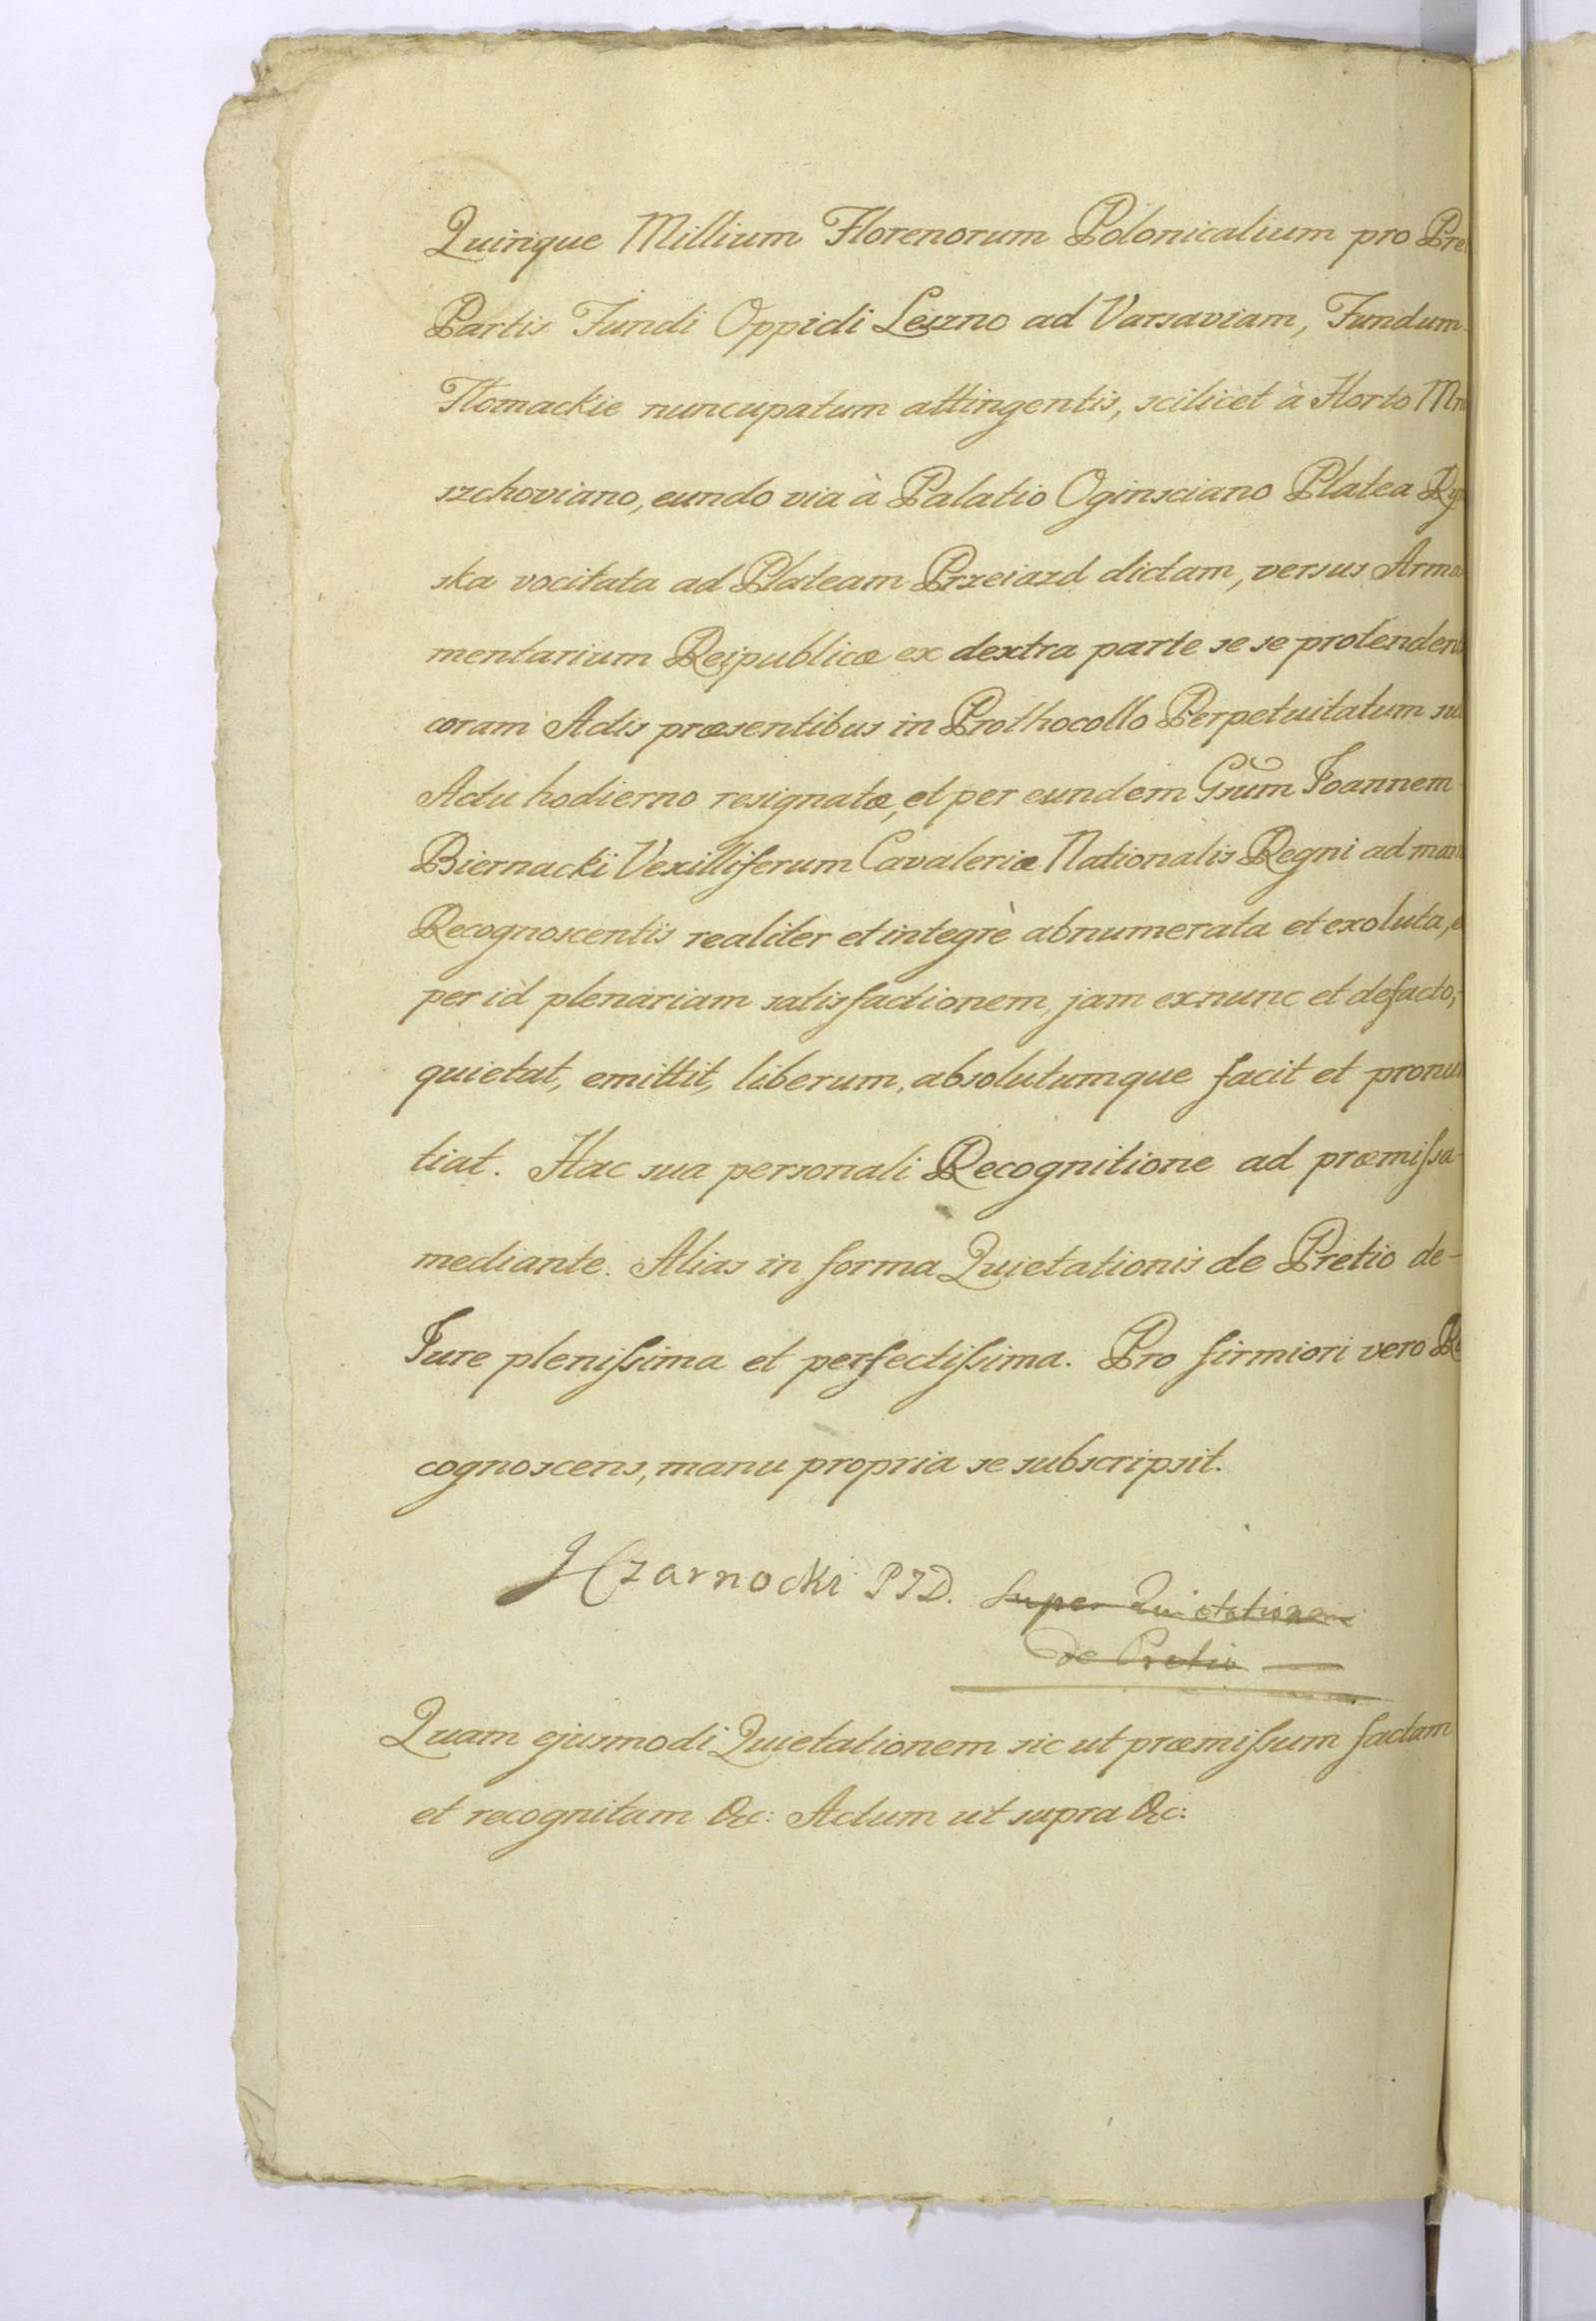 Quinque Millium Florenorum Polonicalium pro Pre
Partis Fundi Oppidi Leszno ad Varsaviam, Fundum
Tłomackie nuncupatum attingentis, scilicèt à Horto Mni
szchoviano, eundo via à Palatio Oginsciano Platea Ry
ska vocitata ad Plateam Przeiazd dictam, versus Arma
mentarium Reipublicæ ex dextra parte se se protenden
coram Actis præsentibus in Prothocollo Perpetuitatum su
Actu hodierno resignatæ, et per eundem Gsum Joannem
Biernacki Vexilliferum Cavaleriæ Nationalis Regni ad man
Recognoscentis realiter et integrè abnumerata et exoluta, e
per id plenariam satisfactionem, jam exnunc et defacto,
quietat, emittit, liberum, absolutumque facit et pronun
tiat. Hac sua personali Recognitione ad præmissa
mediante. Alias in forma Quietationis de Pretio de-
Jure plenissima et perfectissima. Pro firmiori vero Re
cognoscens, manu propria se subscripsit.
JCzarnocki PJD. super Quietatione
de Pretio
Quam ejusmodi Quietationem sic ut præmissum factam
et recognitam &c: Actum ut supra &c: